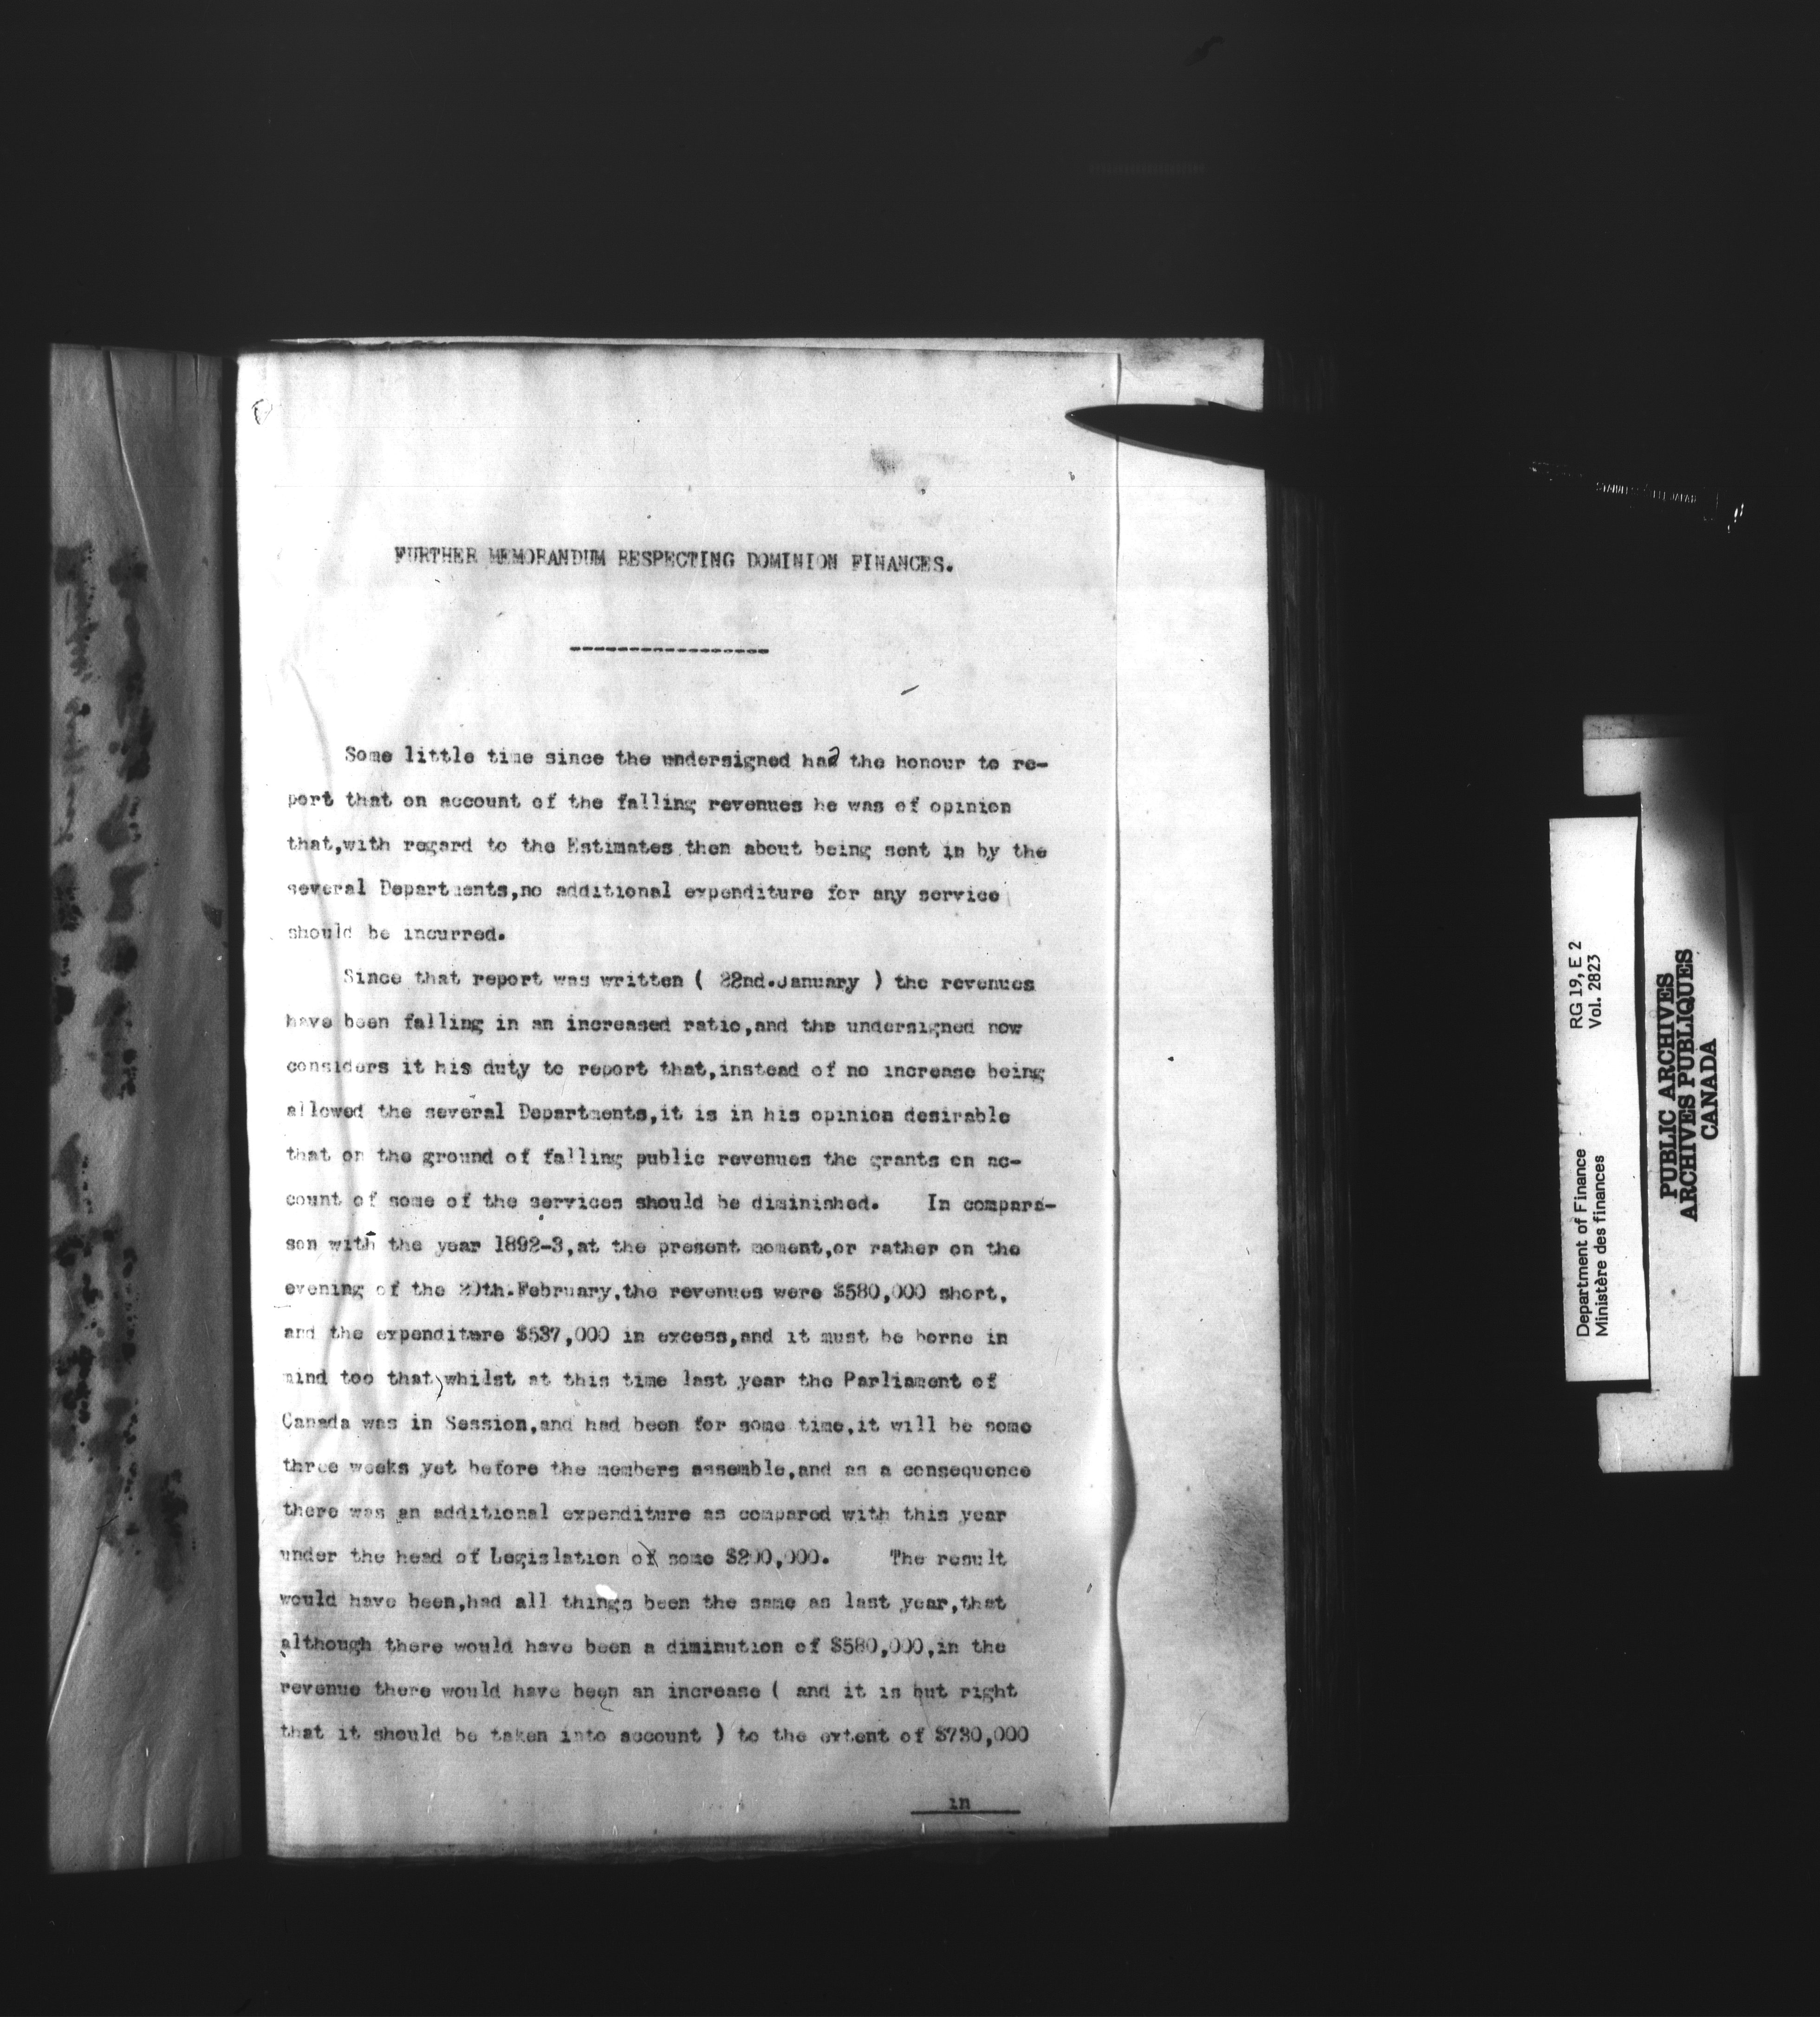 FURTHER MEMORANDUM RESPECTING DOMINION FINANCES.
-----------------
Some little time since the undersigned had the honour to re-
port that on account of the falling revenues he was of opinion
that,with regard to the Estimates then about being sent in by the
several Departments,no additional expenditure for any service
should be incurred.
Since that report was written ( 22nd.January ) the revenues
have been falling in an increased ratio,and the undersigned now
considers it his duty to report that,instead of no increase being
allowed the several Departments,it is in his opinion desirable
that on the ground of falling public revenues the grants on ac-
count of some of the services should be diminished. In compara-
son with the year 1892-3,at the present moment,or rather on the
evening of the 20th.February,the revenues were $580,000 short,
and the expenditure $537,000 in excess,and it must be borne in
mind too that,whilst at this time last year the Parliament of
Canada was in Session,and had been for some time,it will be some
three weeks yet before the members assemble,and as a consequence
there was an additional expenditure as compared with this year
under the head of Legislation of some $200,000. The result
would have been,had all things been the same as last year,that
although there would have been a diminution of $580,000,in the
revenue there would have been an increase ( and it is but right
that it should be taken into account ) to the extent of $730,000
in
Department of Finance RG 19, E 2
Ministère des finances Vol. 2823
PUBLIC ARCHIVES
ARCHIVES PUBLIQUES
CANADA